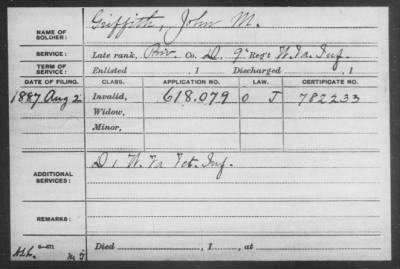 NAME OF SOLDIER: Griffith, John M.
SERVICE: Late rank, Priv. Co. D, 9" Reg't W. Va. Inf.
TERM OF SERVICE: Enlisted , 1 Discharged , 1
DATE OF FILING. CLASS. APPLICATION NO. LAW. CERTIFICATE NO.
1887 Aug 2 Invalid, 618.079 O J 782233
Widow,
Minor,
ADDITIONAL SERVICES: D, 1 W. Va. Vet. Inf.
REMARKS:
3—671
Died , 1 , at